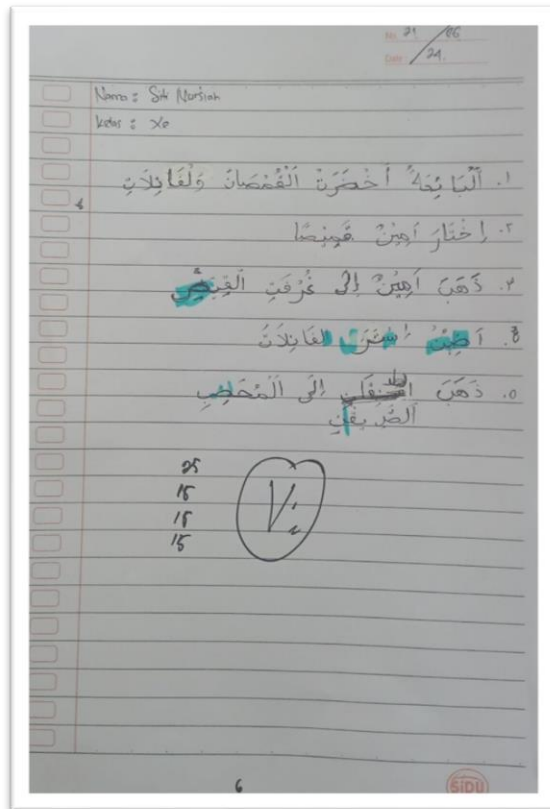 No. 21/06
Date 24.
Nama : Siti Nursiah
kelas : Xe
١. اَلْبَائِعَةُ اَحْضَرَتْ الْقُمْصَانَ وَلْفَانِلَاتِ
٢. اِخْتَارَ اَمِيْنٌ قَمِيْصًا
٣. ذَهَبَ اَمِيْنٌ اِلَى غُرْفَتِ الْقِيَاسِ
٤. اَمِيْنٌ اِشْتَرَى الفَانِلَاتُ
٥. ذَهَبَ إِلَى الْمُحَاصِبِ
الصَّدِيْقَانِ
25
15
15
15
6
SiDU